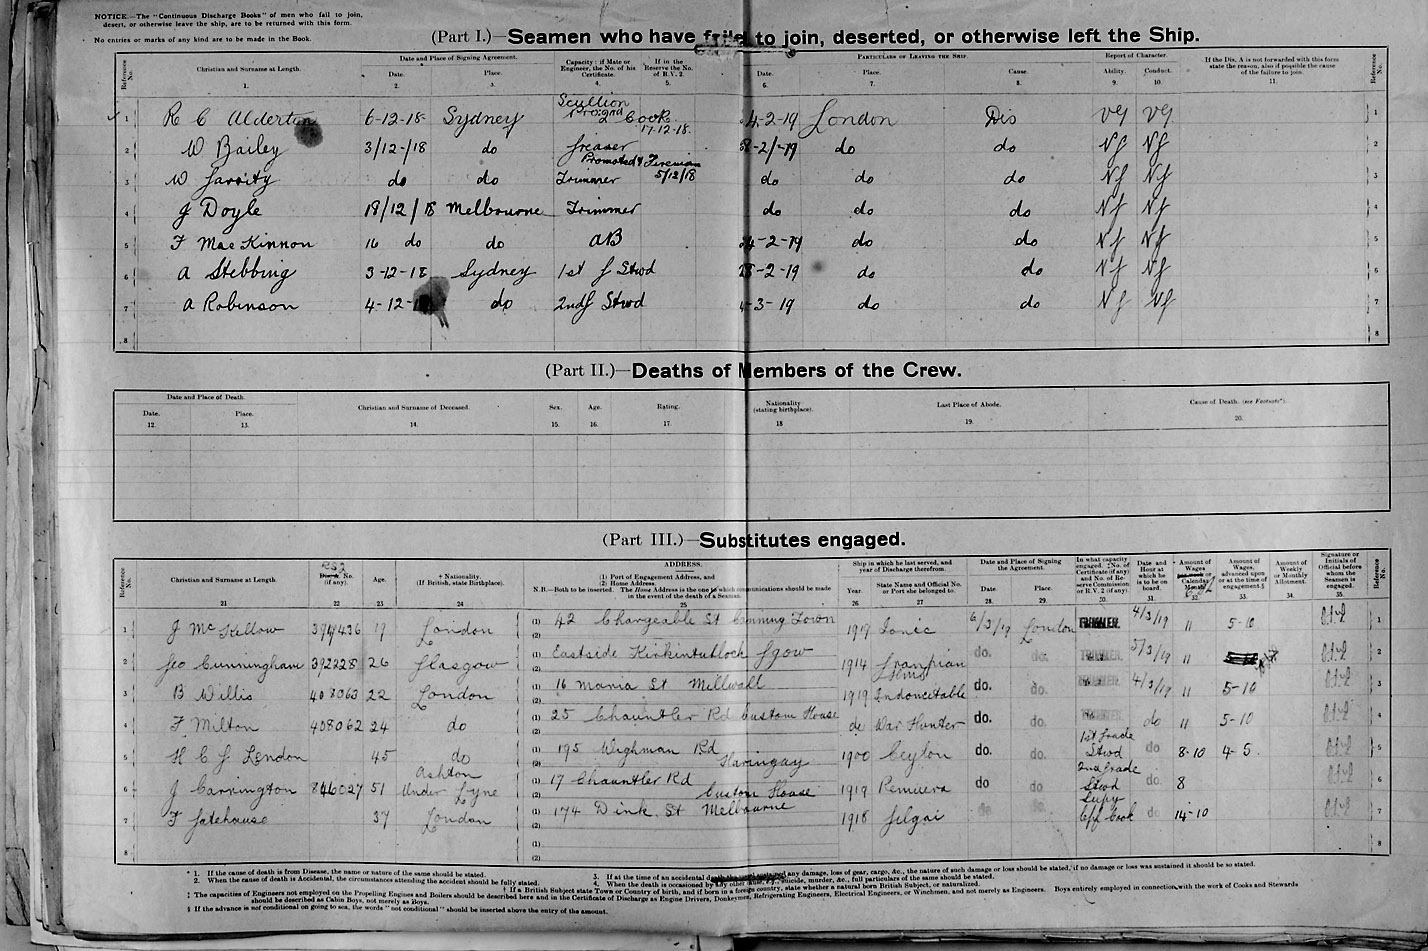 NOTICE.—The "Continuous Discharge Books" of men who fail to join,
desert, or otherwise leave the ship, are to be returned with this form.
No entries or marks of any kind are to be made in the Book.
(Part I.)—Seamen who have failed to join, deserted, or otherwise left the Ship.
Reference No. Christian and Surname at Length. Date and Place of Signing Agreement. Date. Place. Capacity: if Mate or Engineer, the No. of his Certificate. If in the Reserve the No. of R.V. 2. Particulars of Leaving the Ship Date. Place. Cause. Report of Character. Ability. Conduct. If the Dis. A is not forwarded with this form state the reason, also if possible the cause of the failure to join. Reference No.
1. 2. 3. 4. 5. 6. 7. 8. 9. 10. 11.
Scullion
1 R C Alderton 6-12-18 Sydney Pro: 2nd Cook 4-2-19 London Dis VG VG 1
17-12-18.
2 W Bailey 3/12/18 do Greaser -2-19 do do VG VG 2
Promoted Fireman
3 W Garrity do do Trimmer 5/12/18 do do do VG VG 3
4 J Doyle 18/12/18 Melbourne Trimmer do do do VG VG 4
5 F MacKinnon 16 do do AB 24-2-19 do do VG VG 5
6 A Stebbing 3-12-18 Sydney 1st G Stwd 28-2-19 do do VG VG 6
7 A Robinson 4-12-18 do 2nd G Stwd 4-3-19 do do VG VG 7
8 8
(Part II.)—Deaths of Members of the Crew.
Date and Place of Death. Date. Place. Christian and Surname of Deceased. Sex. Age. Rating. Nationality (stating birthplace). Last Place of Abode. Cause of Death. (see Footnote*).
12. 13. 14. 15. 16. 17. 18 19. 20.
(Part III.)—Substitutes engaged.
Reference No. Christian and Surname at Length. RS2 Dis. A. No. (if any). Age. † Nationality. (If British, state Birthplace). ADDRESS. (1) Port of Engagement Address, and (2) Home Address. N.B.—Both to be inserted. The Home Address is the one to which communications should be made in the event of the death of a Seaman. Ship in which he last served, and year of Discharge therefrom. Year. State Name and Official No. or Port she belonged to. Date and Place of Signing the Agreement. Date. Place. In what capacity engaged. ‡ No. of Certificate (if any) and No. of Reserve Commission or R.V. 2 (if any). Date and Hour at which he is to be on board. Amount of Wages Calendar Month. Amount of Wages, advanced upon or at time of engagement. § Amount of Weekly or Monthly Allotment. Signature or Initials of Official before whom the Seaman is engaged. Reference No.
21 22 23 24 25 26 27 28. 29. 30. 31. 32. 33. 34. 35.
1 J McKellow 19 London (1) 42 Chargeable St Canning Town 1919 Ionic 6/3/19 London TRIMMER. 4/3/19 11 5-10 1
2 Geo Cunningham 392228 26 Glasgow (1) Eastside Kirkintulloch Ggow 1914 Grampian do. do. TRIMMER. 5/3/19 11 2
3 B Willis 408063 22 London (1) 16 Maria St Millwall 1919 Indomitable do. do. 4/3/19 11 5-10 3
4 F Milton 408062 24 do (1) 25 Chauntler Rd Custom House do War Hunter do. do. TRIMMER. do 11 5-10 4
5 H C G Lendon 45 do (1) 195 Wighman Rd Haringay 1900 Ceylon do. do. 1st Grade Stwd do 8-10 4-5. 5
6 J Carrington 846027 51 Ashton Under Lyne (1) 17 Chauntler Rd Custom House 1919 Remuera do do. 2nd Grade Stwd do. 8 6
7 F Gatehouse 37 London (1) 174 Dink St Melbourne 1918 Gilgai do do. Supy Cff Cook do 14-10 7
8 (1) (2) 8
* 1. If the cause of death is from Disease, the name or nature of the same should be stated.
2. When the cause of death is Accidental, the circumstances attending the accident should be fully stated.
3. If at the time of an accidental death the vessel sustained any damage, loss of gear, cargo, &c., the nature of such damage or loss should be stated; if no damage or loss was sustained it should be so stated.
4. When the death is occasioned by any other cause, e.g., suicide, murder, &c., full particulars of the same should be stated.
† If a British Subject state Town or Country of birth, and if born in a foreign country, state whether a natural born British Subject, or naturalized.
‡ The capacities of Engineers not employed on the Propelling Engines and Boilers should be described here and in the Certificate of Discharge as Engine Drivers, Donkeymen, Refrigerating Engineers, Electrical Engineers, or Winchmen, and not merely as Engineers. Boys entirely employed in connection with the work of Cooks and Stewards
should be described as Cabin Boys, not merely as Boys.
§ If the advance is not conditional on going to sea, the words "not conditional" should be inserted above the entry of the amount.